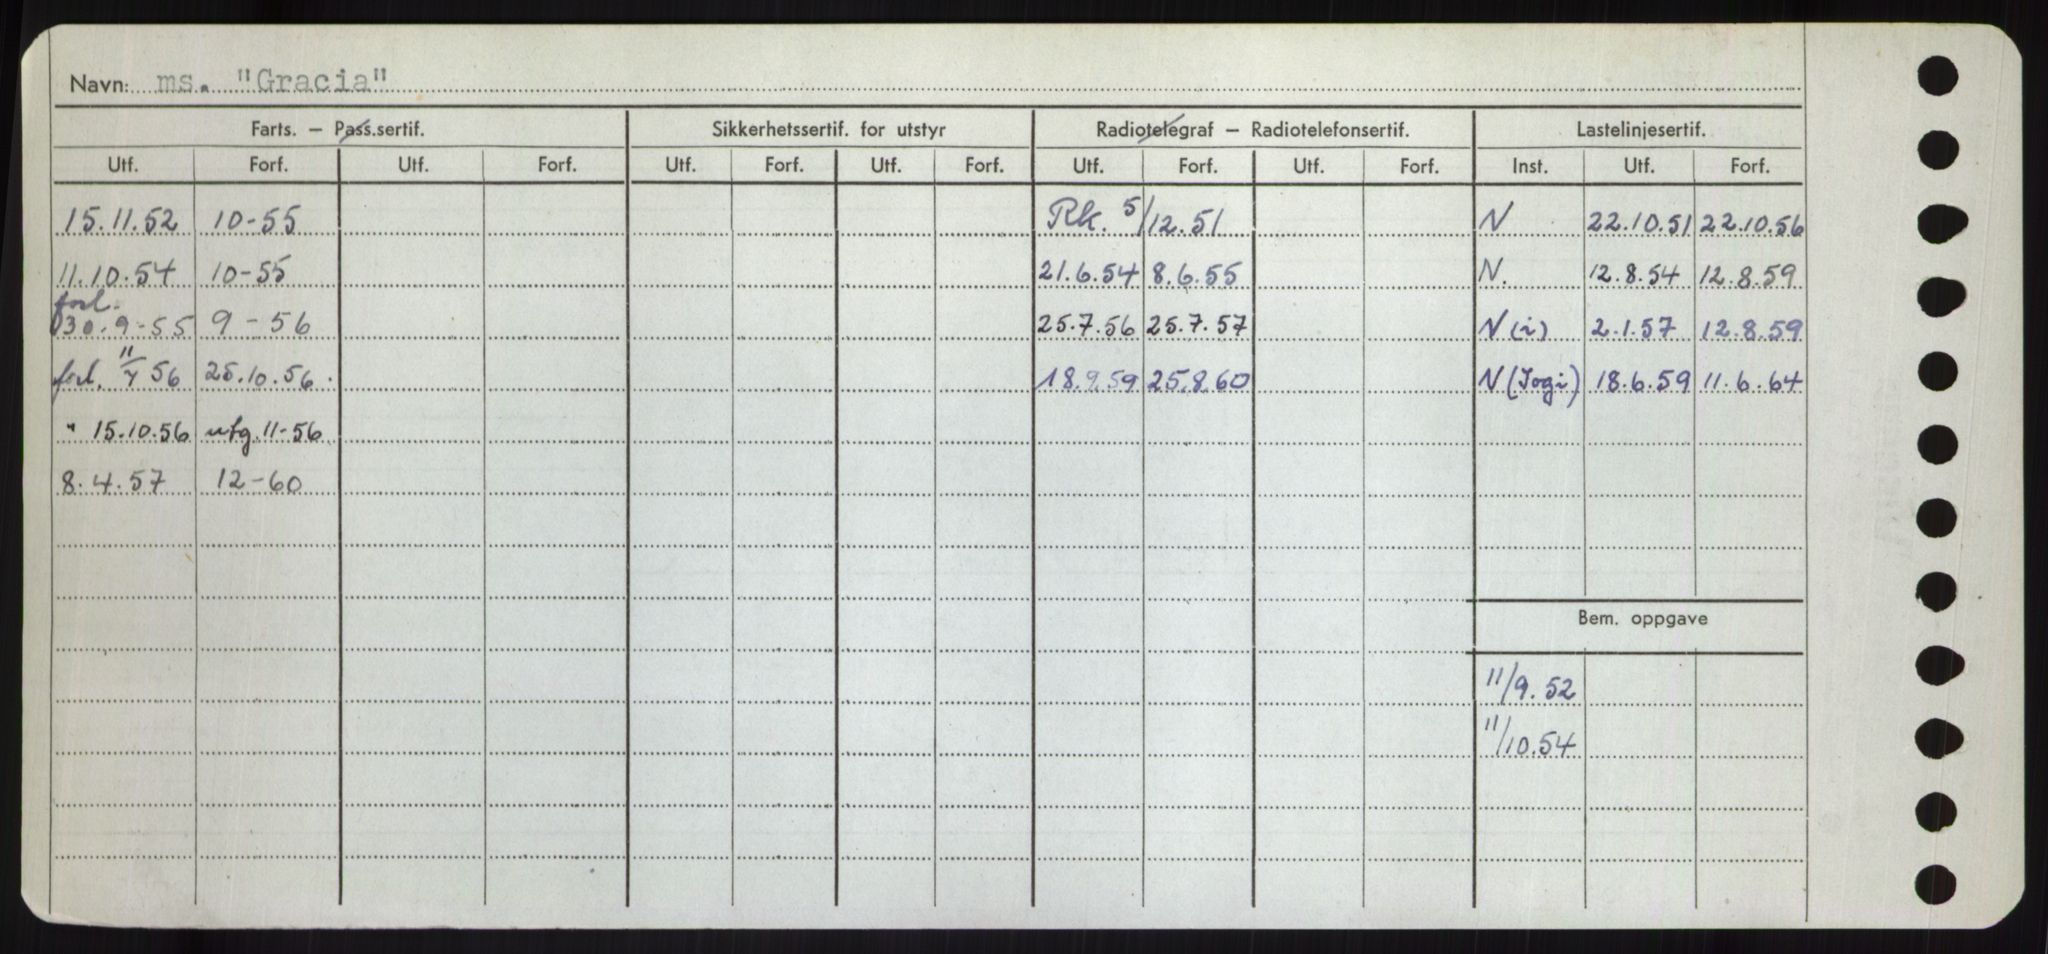 Navn: ms. "Gracia"
Farts. – Pass.sertif. Sikkerhetssertif. for utstyr Radiotelegraf – Radiotelefonsertif. Lastelinjesertif.
Utf. Forf. Utf. Forf. Utf. Forf. Utf. Forf. Utf. Forf. Utf. Forf. Inst. Utf. Forf.
15.11.52 10-55 Rk. 5/12.51 N 22.10.51 22.10.56
11.10.54 10-55 21.6.54 8.6.55 N. 12.8.54 12.8.59
forl. 30.9-55 9-56 25.7.56 25.7.57 N(i) 2.1.57 12.8.59
forl. 11/7 56 25.10.56. 18.9.59 25.8.60 N(Togi) 18.6.59 11.6.64
" 15.10.56 utg. 11-56
8.4.57 12-60
Bem. oppgave
11/9.52
11/10.54